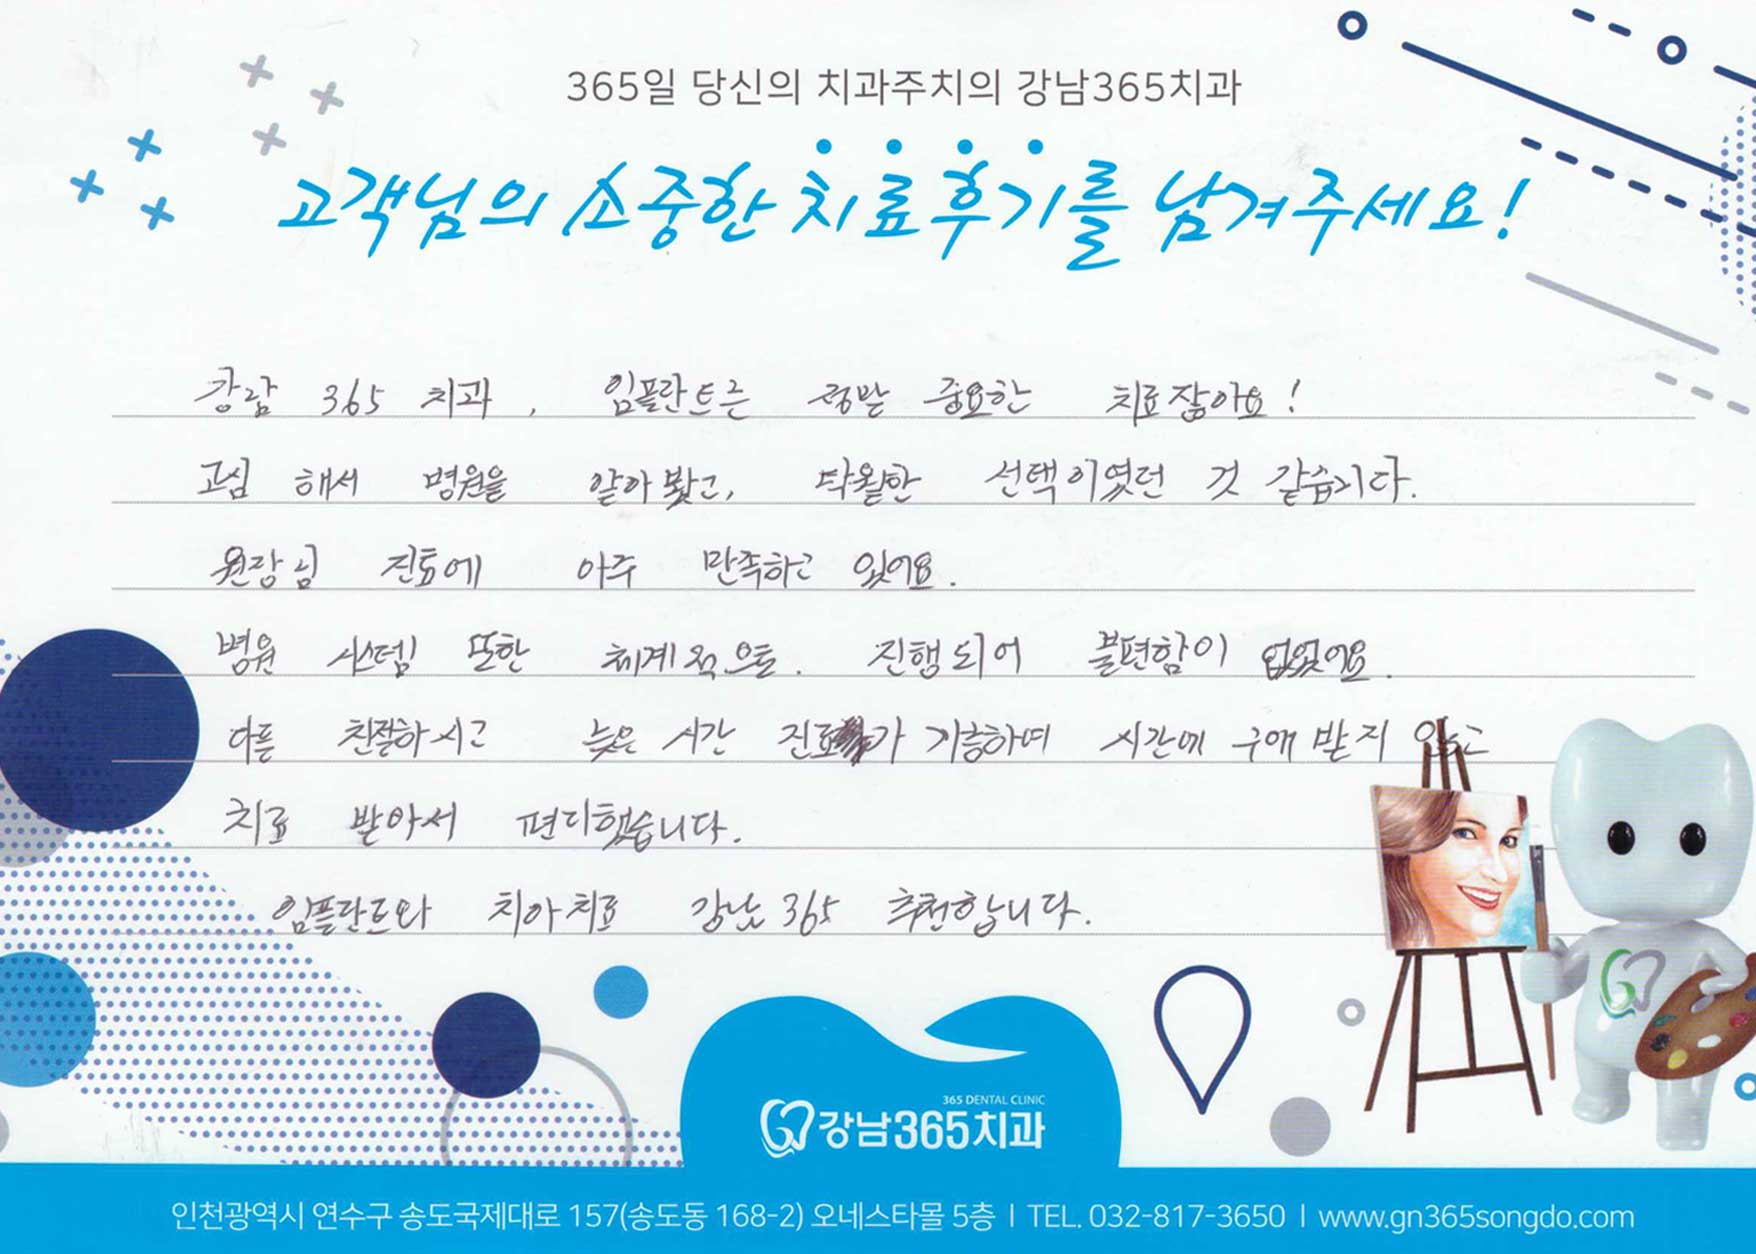 365일 당신의 치과주치의 강남365치과
고객님의 소중한 치료후기를 남겨주세요!
강남 365 치과, 임플란트는 정말 중요한 치료잖아요!
고심 해서 병원을 알아봤고, 탁월한 선택이였던 것 같습니다.
원장님 진료에 아주 만족하고 있어요.
병원 시스템 또한 체계적으로. 진행되어 불편함이 없었어요.
다들 친절하시고 늦은 시간 진료가 가능하여 시간에 구애 받지 않고
치료 받아서 편리했습니다.
임플란트와 치아치료 강남365 추천합니다.
365 DENTAL CLINIC
강남365치과
인천광역시 연수구 송도국제대로 157(송도동 168-2) 오네스타몰 5층 | TEL. 032-817-3650 | www.gn365songdo.com